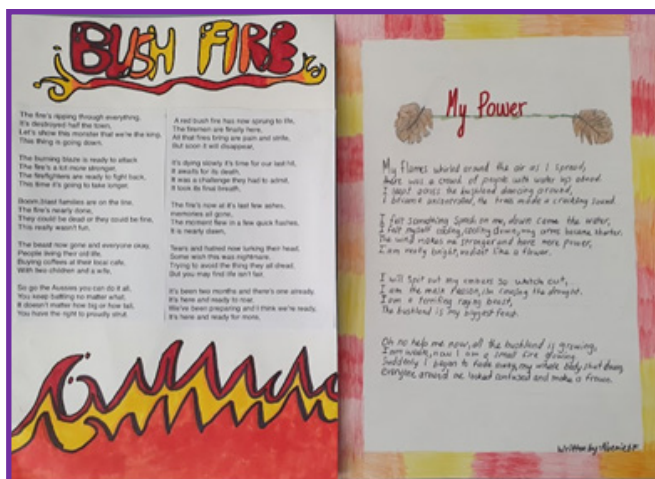 BUSH FIRE
The fire's ripping through everything,
It's destroyed half the town,
Let's show this monster that we're the king,
This thing is going down.
The burning blaze is ready to attack
The fire's a lot more stronger,
The firefighters are ready to fight back,
This time it's going to take longer.
Boom,blast families are on the line,
The fire's nearly done,
They could be dead or they could be fine,
This really wasn't fun.
The beast now gone and everyone okay,
People living their old life,
Buying coffees at their local cafe,
With two children and a wife,
So go the Aussies you can do it all,
You keep battling no matter what,
It doesn't matter how big or how tall,
You have the right to proudly strut.
A red bush fire has now sprung to life,
The firemen are finally here,
All that fires bring are pain and strife,
But soon it will disappear,
It's dying slowly it's time for our last hit,
It awaits for its death,
It was a challenge they had to admit,
It took its final breath,
The fire's now at it's last few ashes,
memories all gone,
The moment flew in a few quick flashes,
It is nearly dawn,
Tears and hatred now lurking their head,
Some wish this was nightmare,
Trying to avoid the thing they all dread,
But you may find life isn't fair.
It's been two months and there's one already,
It's here and ready to roar,
We've been preparing and I think we're ready,
It's here and ready for more,
My Power
My flames whirled around the air as I spread,
there was a crowd of people with water up ahead
I leapt across the bushland dancing around,
I became uncontrolled, the trees made a crackling sound.
I felt something splash on me, down came the water,
I felt myself cooling down, my arms became shorter.
The wind makes me stronger and have more power,
I am really bright, radiant like a flower.
I will spit out my embers so watch out,
I am the main reason, I'm causing the drought.
I am a terrifying raging beast,
The bushland is my biggest feast.
Oh no help me now, all the bushland is growing,
I am weak, now I am a small fire glowing.
Suddenly I began to fade away, my whole body shut down,
everyone around me looked confused and make a frown.
Written by: